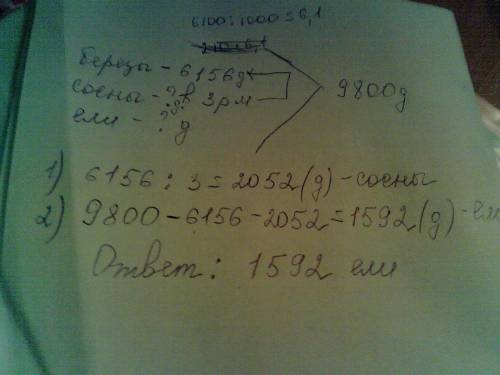 6100:1000=6,1
березы - 6156д
сосны - ? в 3 р м
ели - ? д
9800д
1) 6156 : 3 = 2052 (д) - сосны
2) 9800 - 6156 - 2052 = 1592 (д) - ели
Ответ: 1592 ели